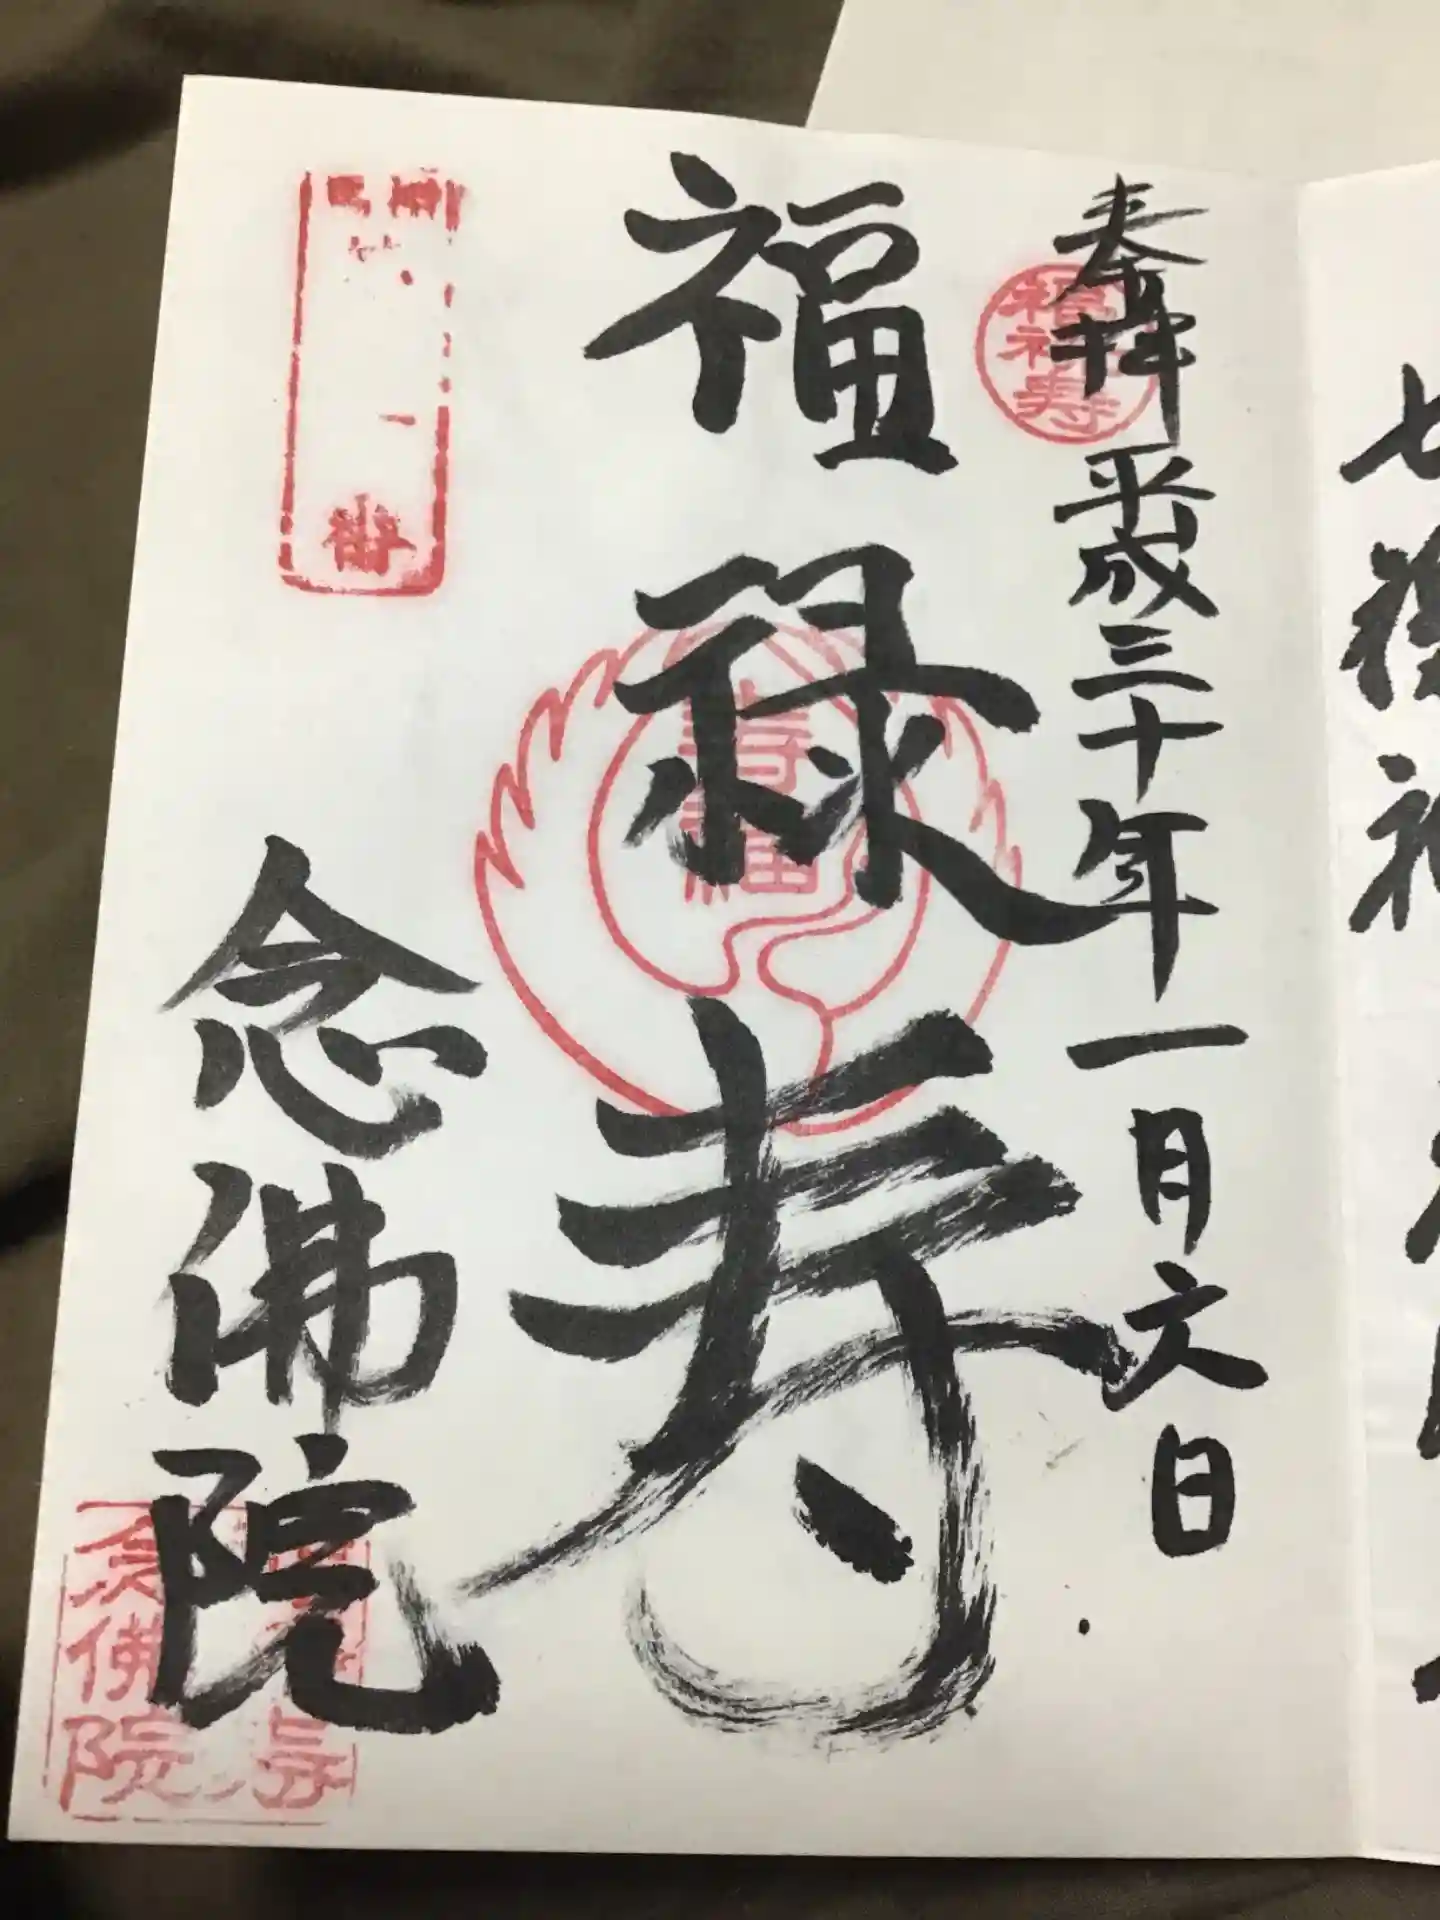 奉拝 平成三十年一月六日
福禄寿
念佛院
福禄寿
寿福
念佛院